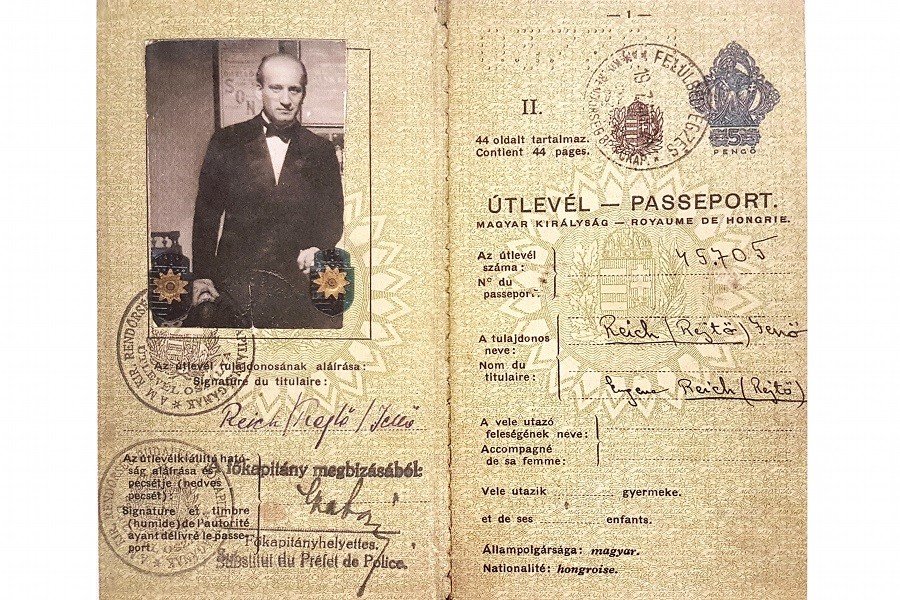 Az útlevél tulajdonosának aláírása:
Signature du titulaire:
Reich /Rejtő/ Jenő
Az útlevélkiállító ható-
ság aláírása és
pecsétje (nedves
pecsét):
Signature et timbre
(humide) de l'autorité
ayant délivré le passe-
port:
A főkapitány megbízásából:
Főkapitányhelyettes.
Substitut du Préfet de Police.
— 1 —
II.
44 oldalt tartalmaz.
Contient 44 pages.
FELÜLBÉLYEGZÉS
5
PENGŐ
ÚTLEVÉL — PASSEPORT.
MAGYAR KIRÁLYSÁG — ROYAUME DE HONGRIE.
Az útlevél
száma:
Nº du
passeport:
45.705
A tulajdonos
neve:
Reich (Rejtő) Jenő
Nom du
titulaire:
Eugene Reich (Rejtő)
A vele utazó
feleségének neve:
Accompagné
de sa femme:
Vele utazik gyermeke.
et de ses enfants.
Állampolgársága: magyar.
Nationalité: hongroise.